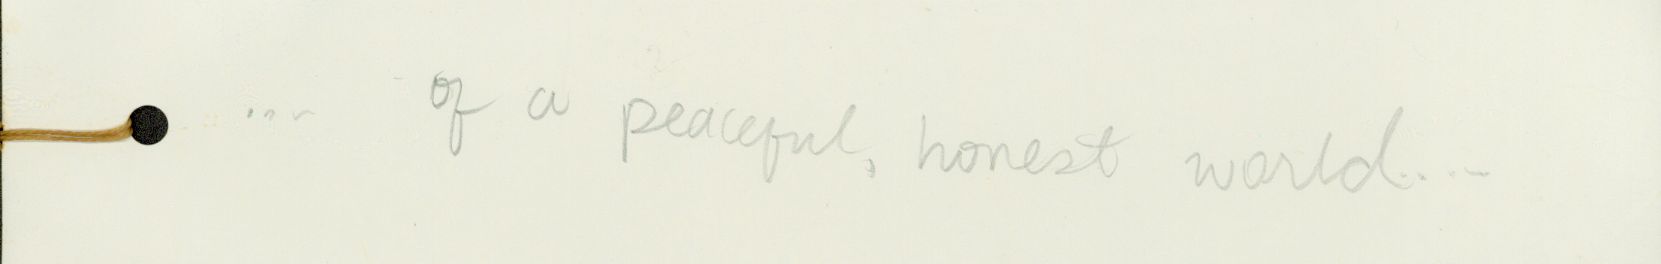 ... of a peaceful, honest world....